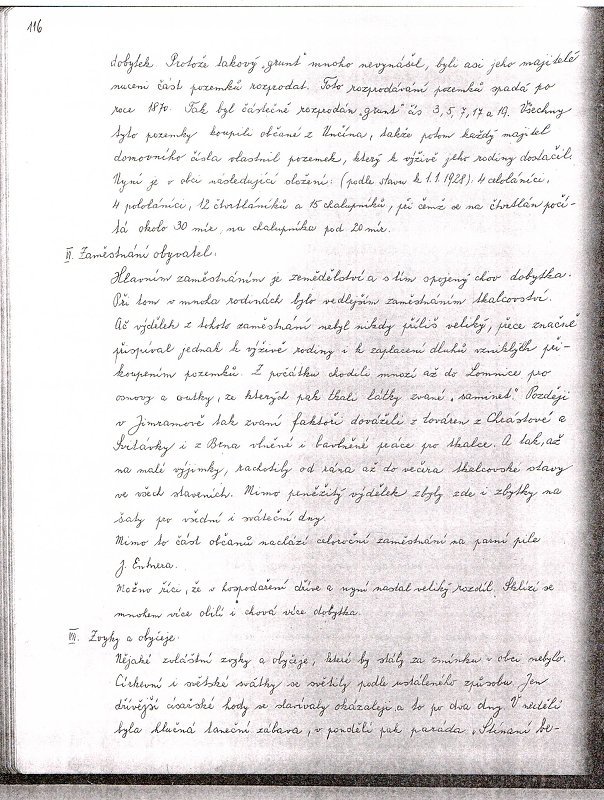 116
dobytek. Protože takový „grunt" mnoho nevynášel, byli asi jeho majitelé
nuceni část pozemků rozprodat. Toto rozprodávání pozemků spadá po
roce 1870. Tak byl částečně rozprodán „grunt" čís 3, 5, 7, 17 a 19. Všechny
tyto pozemky koupili občané z Unčína, takže potom každý majitel
domovního čísla vlastnil pozemek, který k výživě jeho rodiny dostačil.
Nyní je v obci následující složení: (podle stavu k 1.1.1928): 4 celoláníci,
4 pololáníci, 12 čtvrtláníků a 15 chalupníků, při čemž se na čtvrtlán počí-
tá okolo 30 měr, na chalupníka pod 20 měr.
VI. Zaměstnání obyvatel.
Hlavním zaměstnáním je zemědělství a s tím spojený chov dobytka.
Při tom v mnoha rodinách bylo vedlejším zaměstnáním tkalcovství.
Ač výdělek z tohoto zaměstnání nebyl nikdy příliš veliký, přece značně
přispíval jednak k výživě rodiny i k zaplacení dluhů vzniklých při-
koupením pozemků. Z počátku chodili mnozí až do Lomnice pro
osnovy a outky, ze kterých pak tkali látky zvané „saminet". Později
v Jimramově tak zvaní faktoři dováželi z továren z Chrástové a
Svitávky i z Brna vlněné i bavlněné práce pro tkalce. A tak, až
na malé výjimky, rachotily od rána až do večera tkalcovské stavy
ve všech staveních. Mimo peněžitý výdělek zbyly zde i zbytky na
šaty pro všední i sváteční dny.
Mimo to část občanů nachází celoroční zaměstnání na parní pile
J. Entnera.
Možno říci, že v hospodaření dříve a nyní nastal veliký rozdíl. Sklízí se
mnohem více obilí i chová více dobytka.
VII. Zvyky a obyčeje.
Nějaké zvláštní zvyky a obyčeje, které by stály za zmínku v obci nebylo.
Církevní i světské svátky se světily podle ustáleného způsobu. Jen
dřívější císařské hody se slavívaly okázaleji a to po dva dny. V neděli
byla hlučná taneční zábava, v pondělí pak paráda „Stínání be-